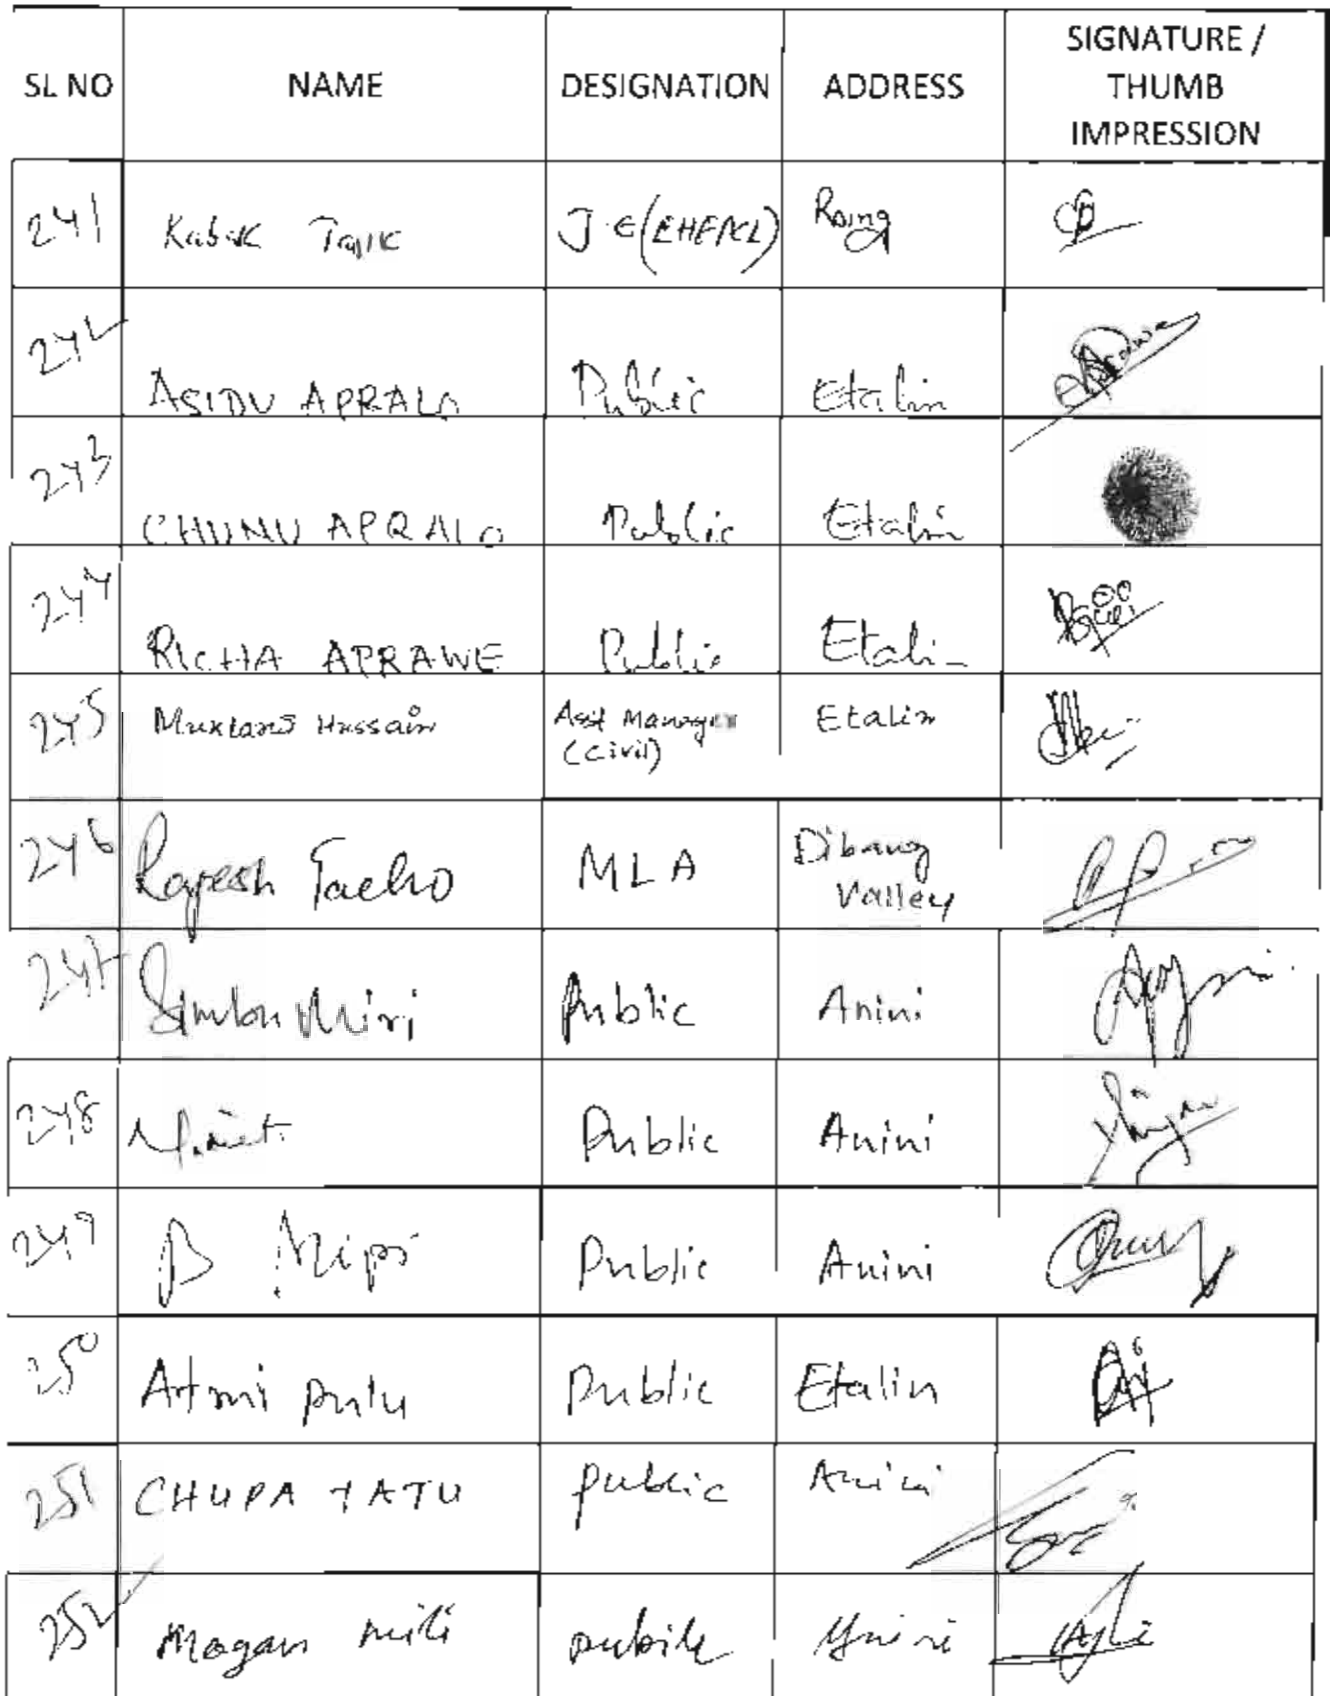 SL NO NAME DESIGNATION ADDRESS SIGNATURE / THUMB IMPRESSION
241 Kabak J.E (EHEPCL) Roing
242 ASIDU APRALO Public Etalin
243 CHUNU APRALO Public Etalin
244 RICHA APRAWE Public Etalin
245 Hussain Asst Manager (Civil) Etalin
246 Rajesh Tacho MLA Dibang Valley
247 Simbu Miri Public Anini
248 Public Anini
249 Public Anini
250 Artmi Pulu Public Etalin
251 CHUPA TATU Public Anini
252 Magan mili Anini